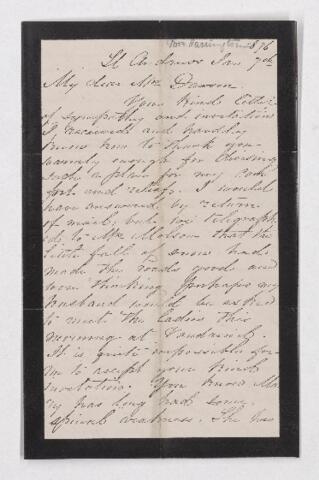 St Andrews Jan. 7th
My dear Mrs Dawson.
Your kind letter
of sympathy and invitation
I received and hardly
know how to thank you
warmly enough for devising
such a plan for my com
fort and relief. I would
have answered by return
of mail, but we telegraph
ed to Mrs Molson that the
little fall of snow had
made the roads good and
were thinking perhaps my
husband would be asked
to meet the ladies this
morning at Vaudreuil.
It is quite impossible for
me to accept your kind
invitation. You know Ma
ry has long had some
spinal weakness. She has